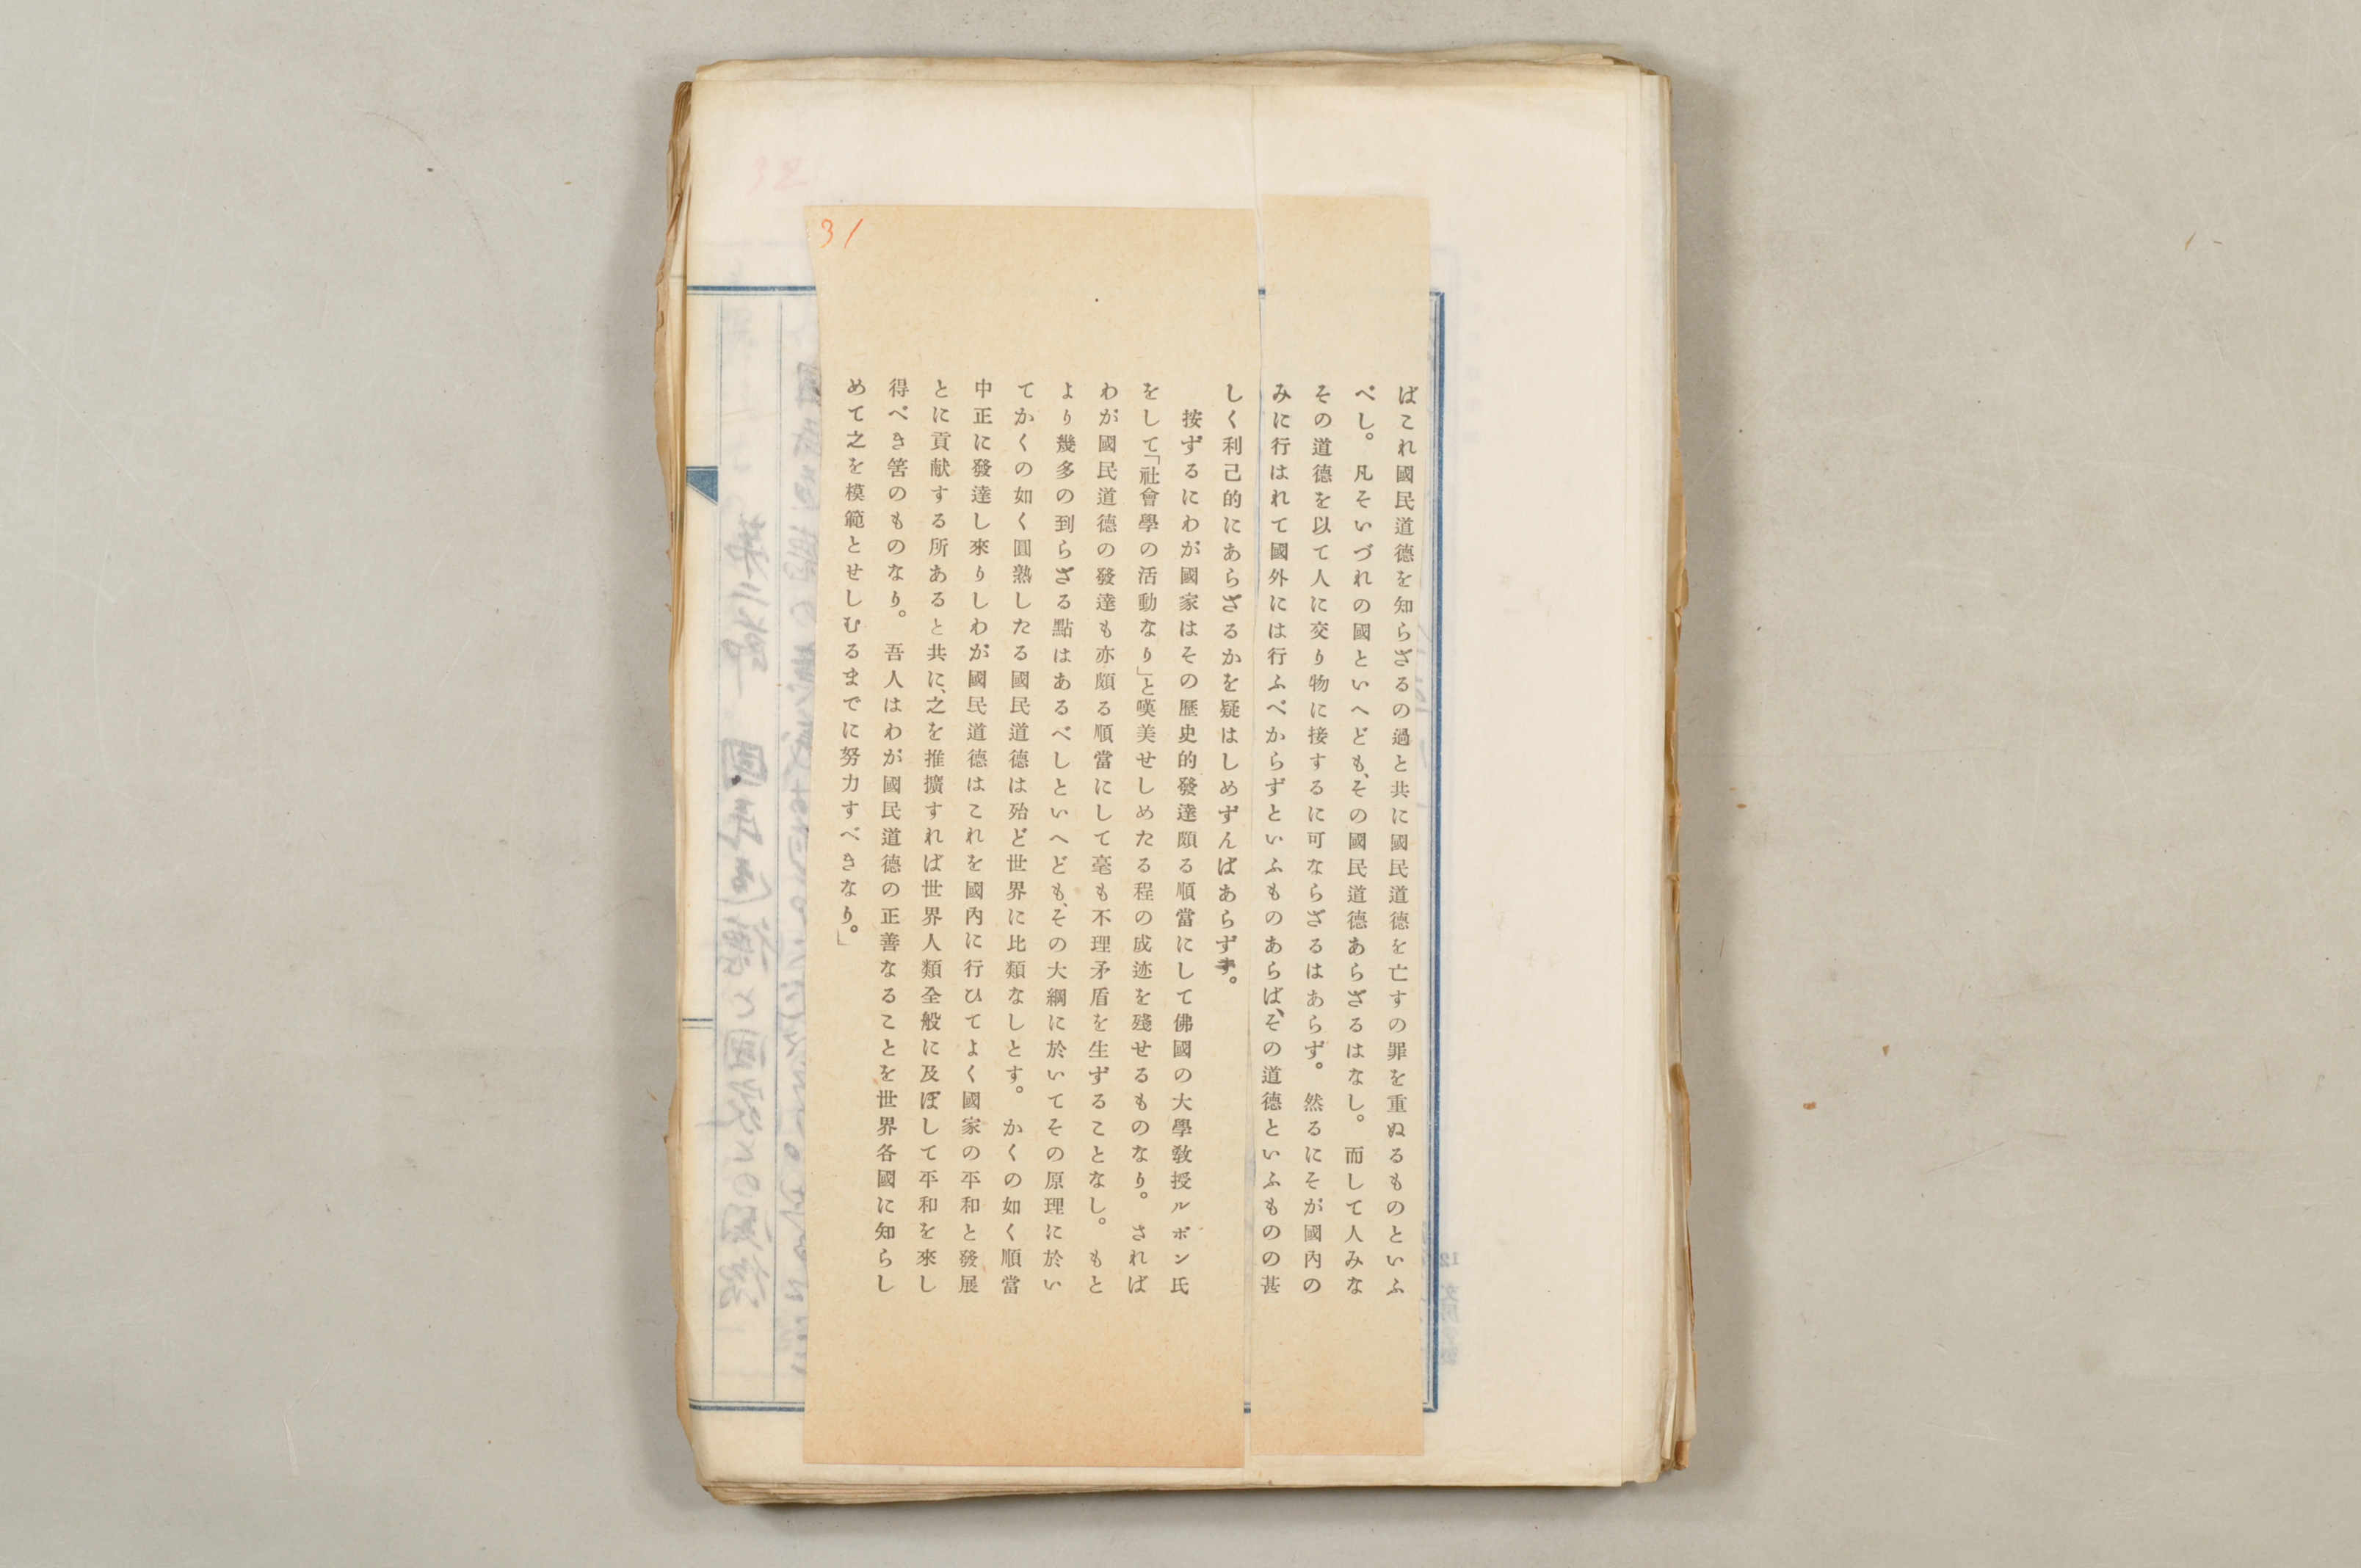 31
ばこれ國民道德を知らざるの過と共に國民道德を亡すの罪を重ぬるものといふ
べし。凡そいづれの國といへども、その國民道德あらざるはなし。而して人みな
その道德を以て人に交り物に接するに可ならざるはあらず。然るにそが國內の
みに行はれて國外には行ふべからずといふものあらば、その道德といふものの甚
しく利己的にあらざるかを疑はしめずんばあらず。
按ずるにわが國家はその歷史的發達頗る順當にして佛國の大學敎授ルボン氏
をして「社會學の活動なり」と嘆美せしめたる程の成迹を殘せるものなり。されば
わが國民道德の發達も亦頗る順當にして毫も不理矛盾を生ずることなし。もと
より幾多の到らざる點はあるべしといへども、その大綱に於いてその原理に於い
てかくの如く圓熟したる國民道德は殆ど世界に比類なしとす。かくの如く順當
中正に發達し來りしわが國民道德はこれを國內に行ひてよく國家の平和と發展
とに貢献する所あると共に、之を推擴すれば世界人類全般に及ぼして平和を來し
得べき筈のものなり。吾人はわが國民道德の正善なることを世界各國に知らし
めて之を模範とせしむるまでに努力すべきなり。」
32